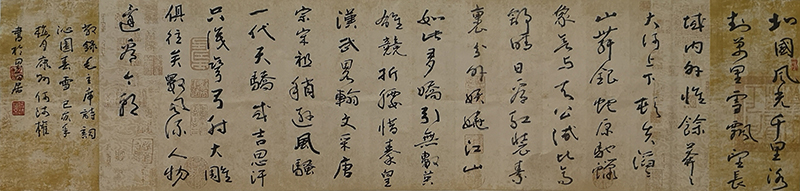 北國風光千里冰
封萬里雪飄望長
城内外惟餘莽〻
大河上下頓失滔〻
山舞銀蛇原馳蠟
象欲与天公試比高
須晴日看紅裝素
裹分外妖嬈江山
如此多嬌引無數英
雄競折腰惜秦皇
漢武略輸文采唐
宗宋祖稍遜風騷
一代天驕成吉思汗
只識彎弓射大雕
俱往矣數風流人物
還看今朝
敬錄毛主席詩詞
沁園春雪己亥年
月康州何沛權
書於墨居